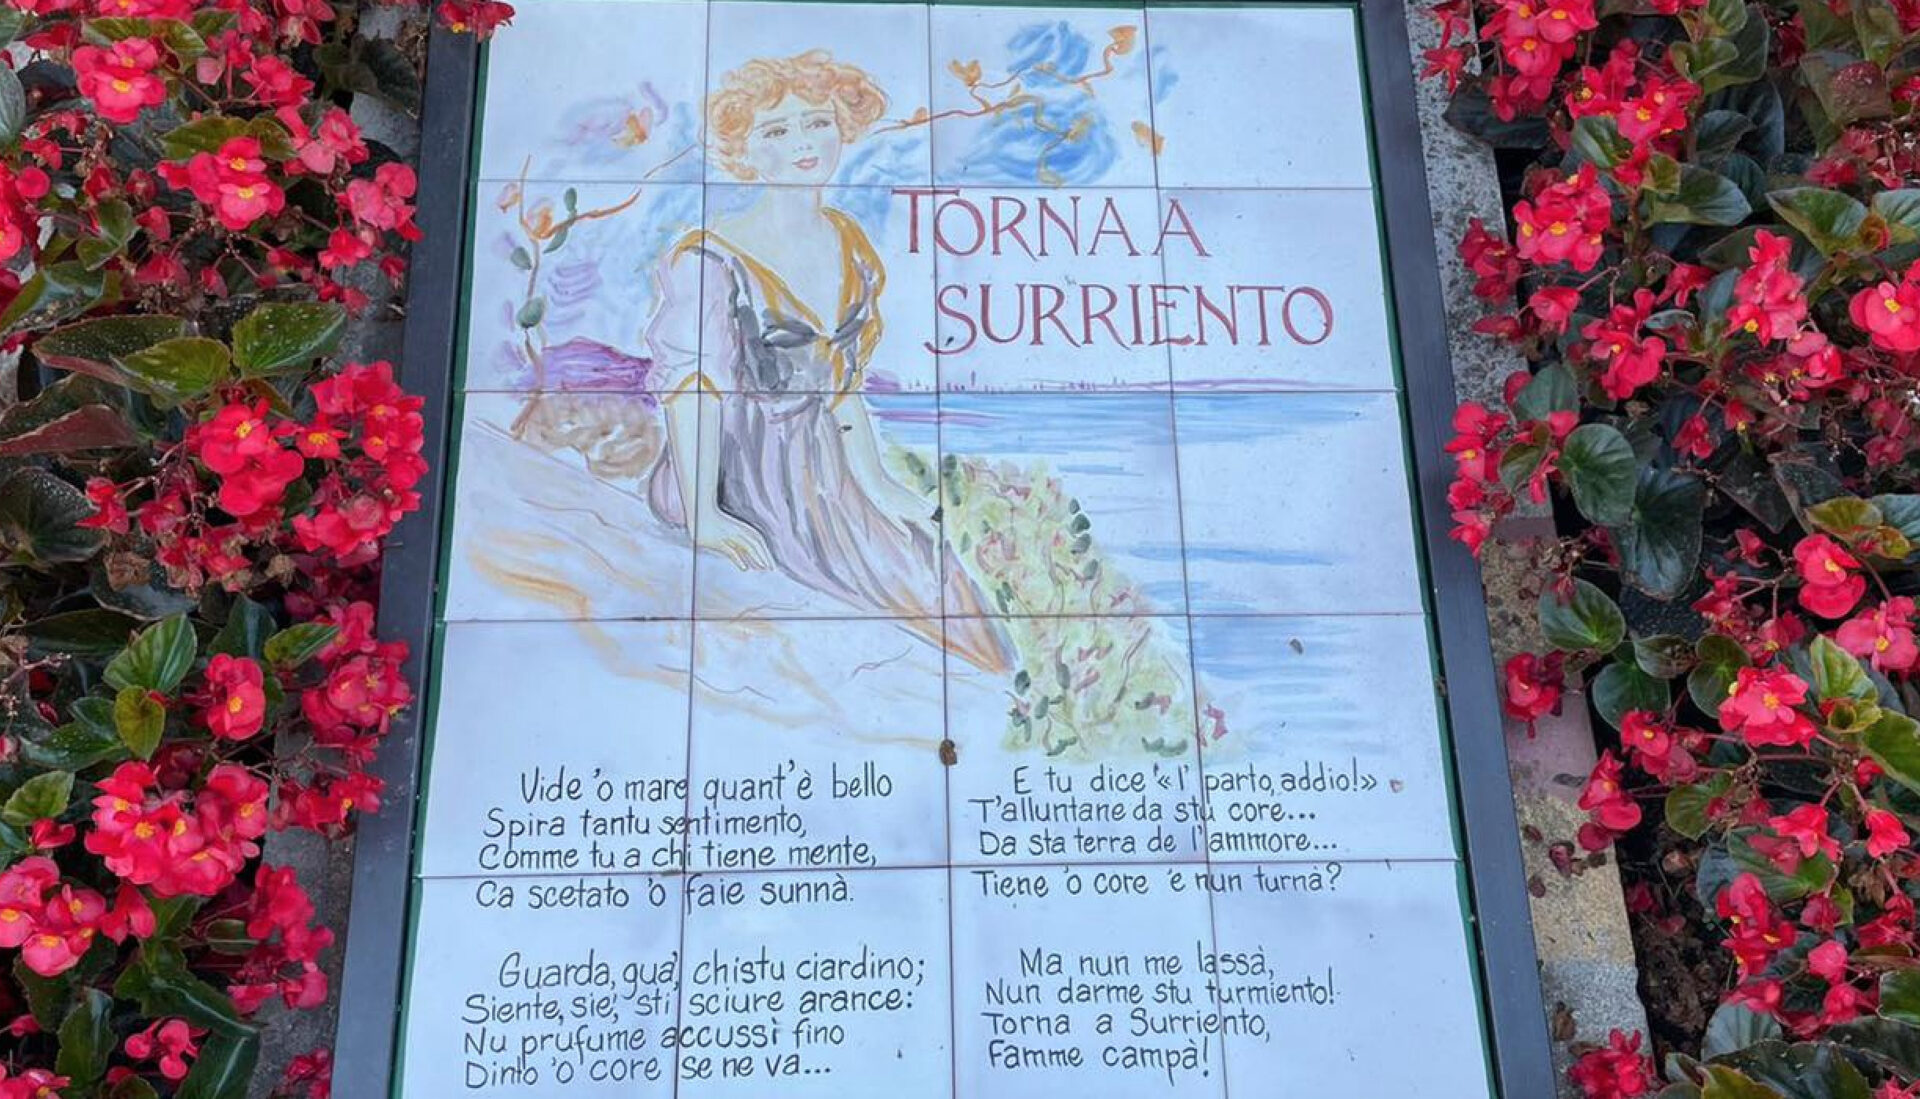 TORNA A
SURRIENTO
Vide 'o mare quant'è bello
Spira tantu sentimento,
Comme tu a chi tiene mente,
Ca scetato 'o faie sunnà.
Guarda, gua', chistu ciardino;
Siente, sie', sti sciure arance:
Nu prufume accussì fino
Dinto 'o core se ne va...
E tu dice «I' parto, addio!»
T'alluntane da stu core...
Da sta terra de l'ammore...
Tiene 'o core 'e nun turnà?
Ma nun me lassà,
Nun darme stu turmiento!
Torna a Surriento,
Famme campà!